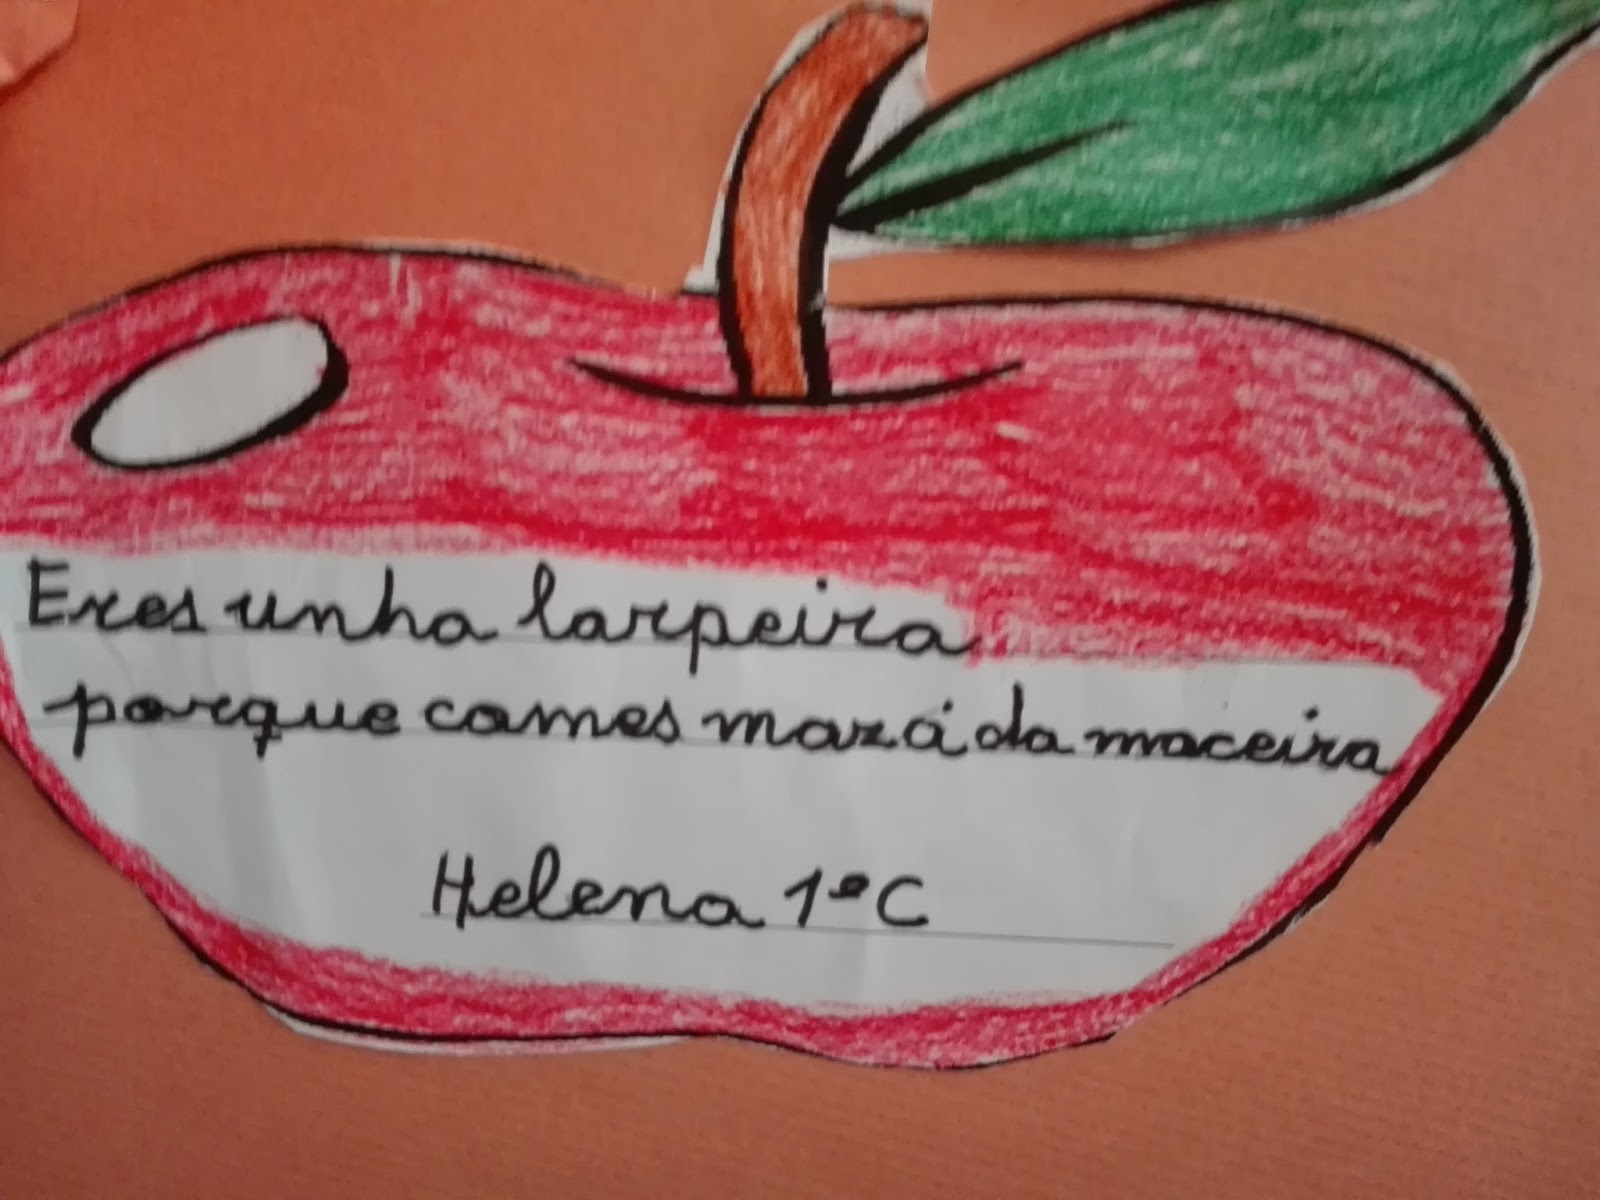 Eres unha larpeira
porque comes mazá da maceira
Helena 1º C